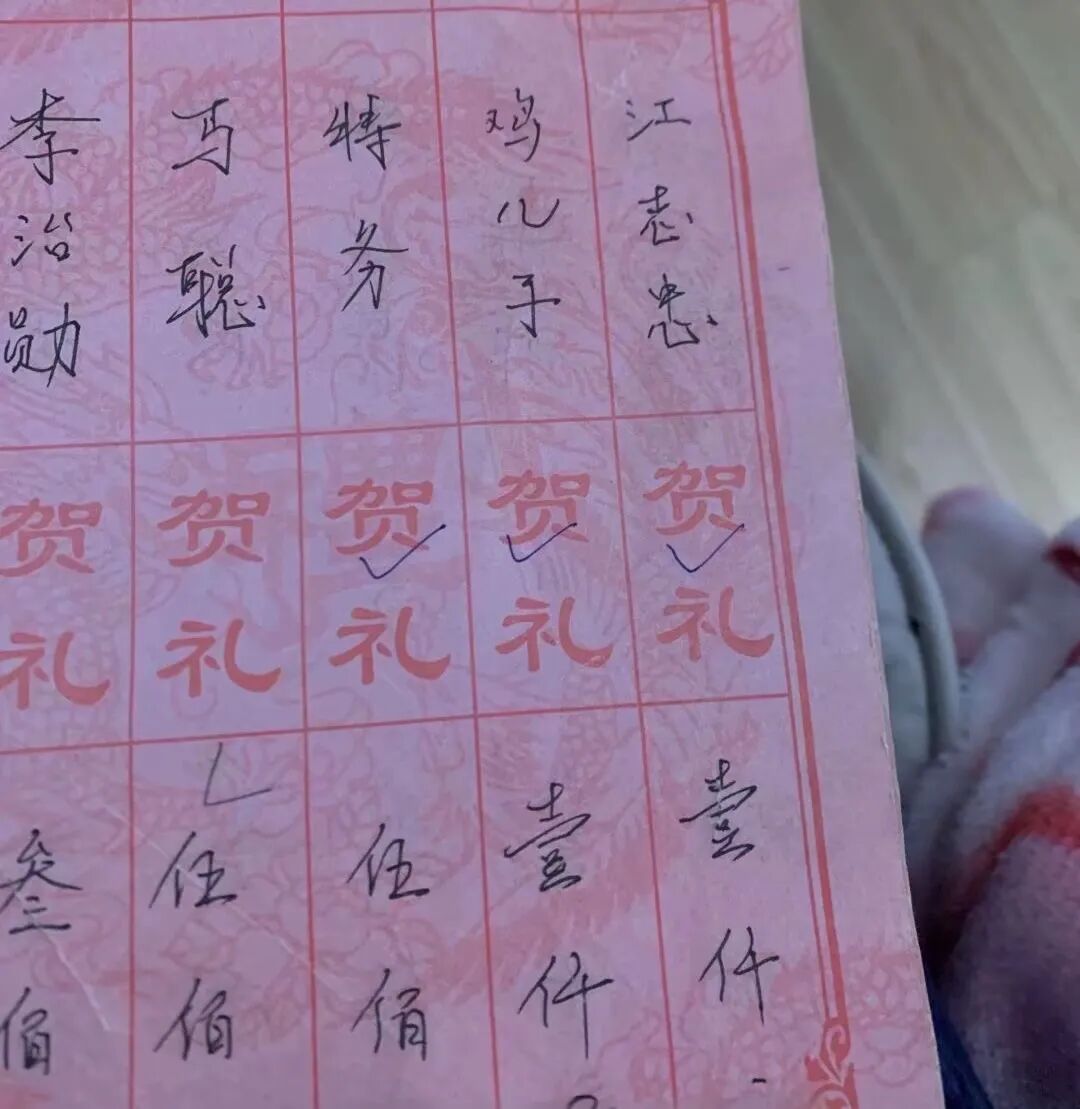 江志忠
贺礼
壹仟
鸡儿子
贺礼
壹仟
特务
贺礼
伍佰
马聪
贺礼
伍佰
李治勋
贺礼
叁佰